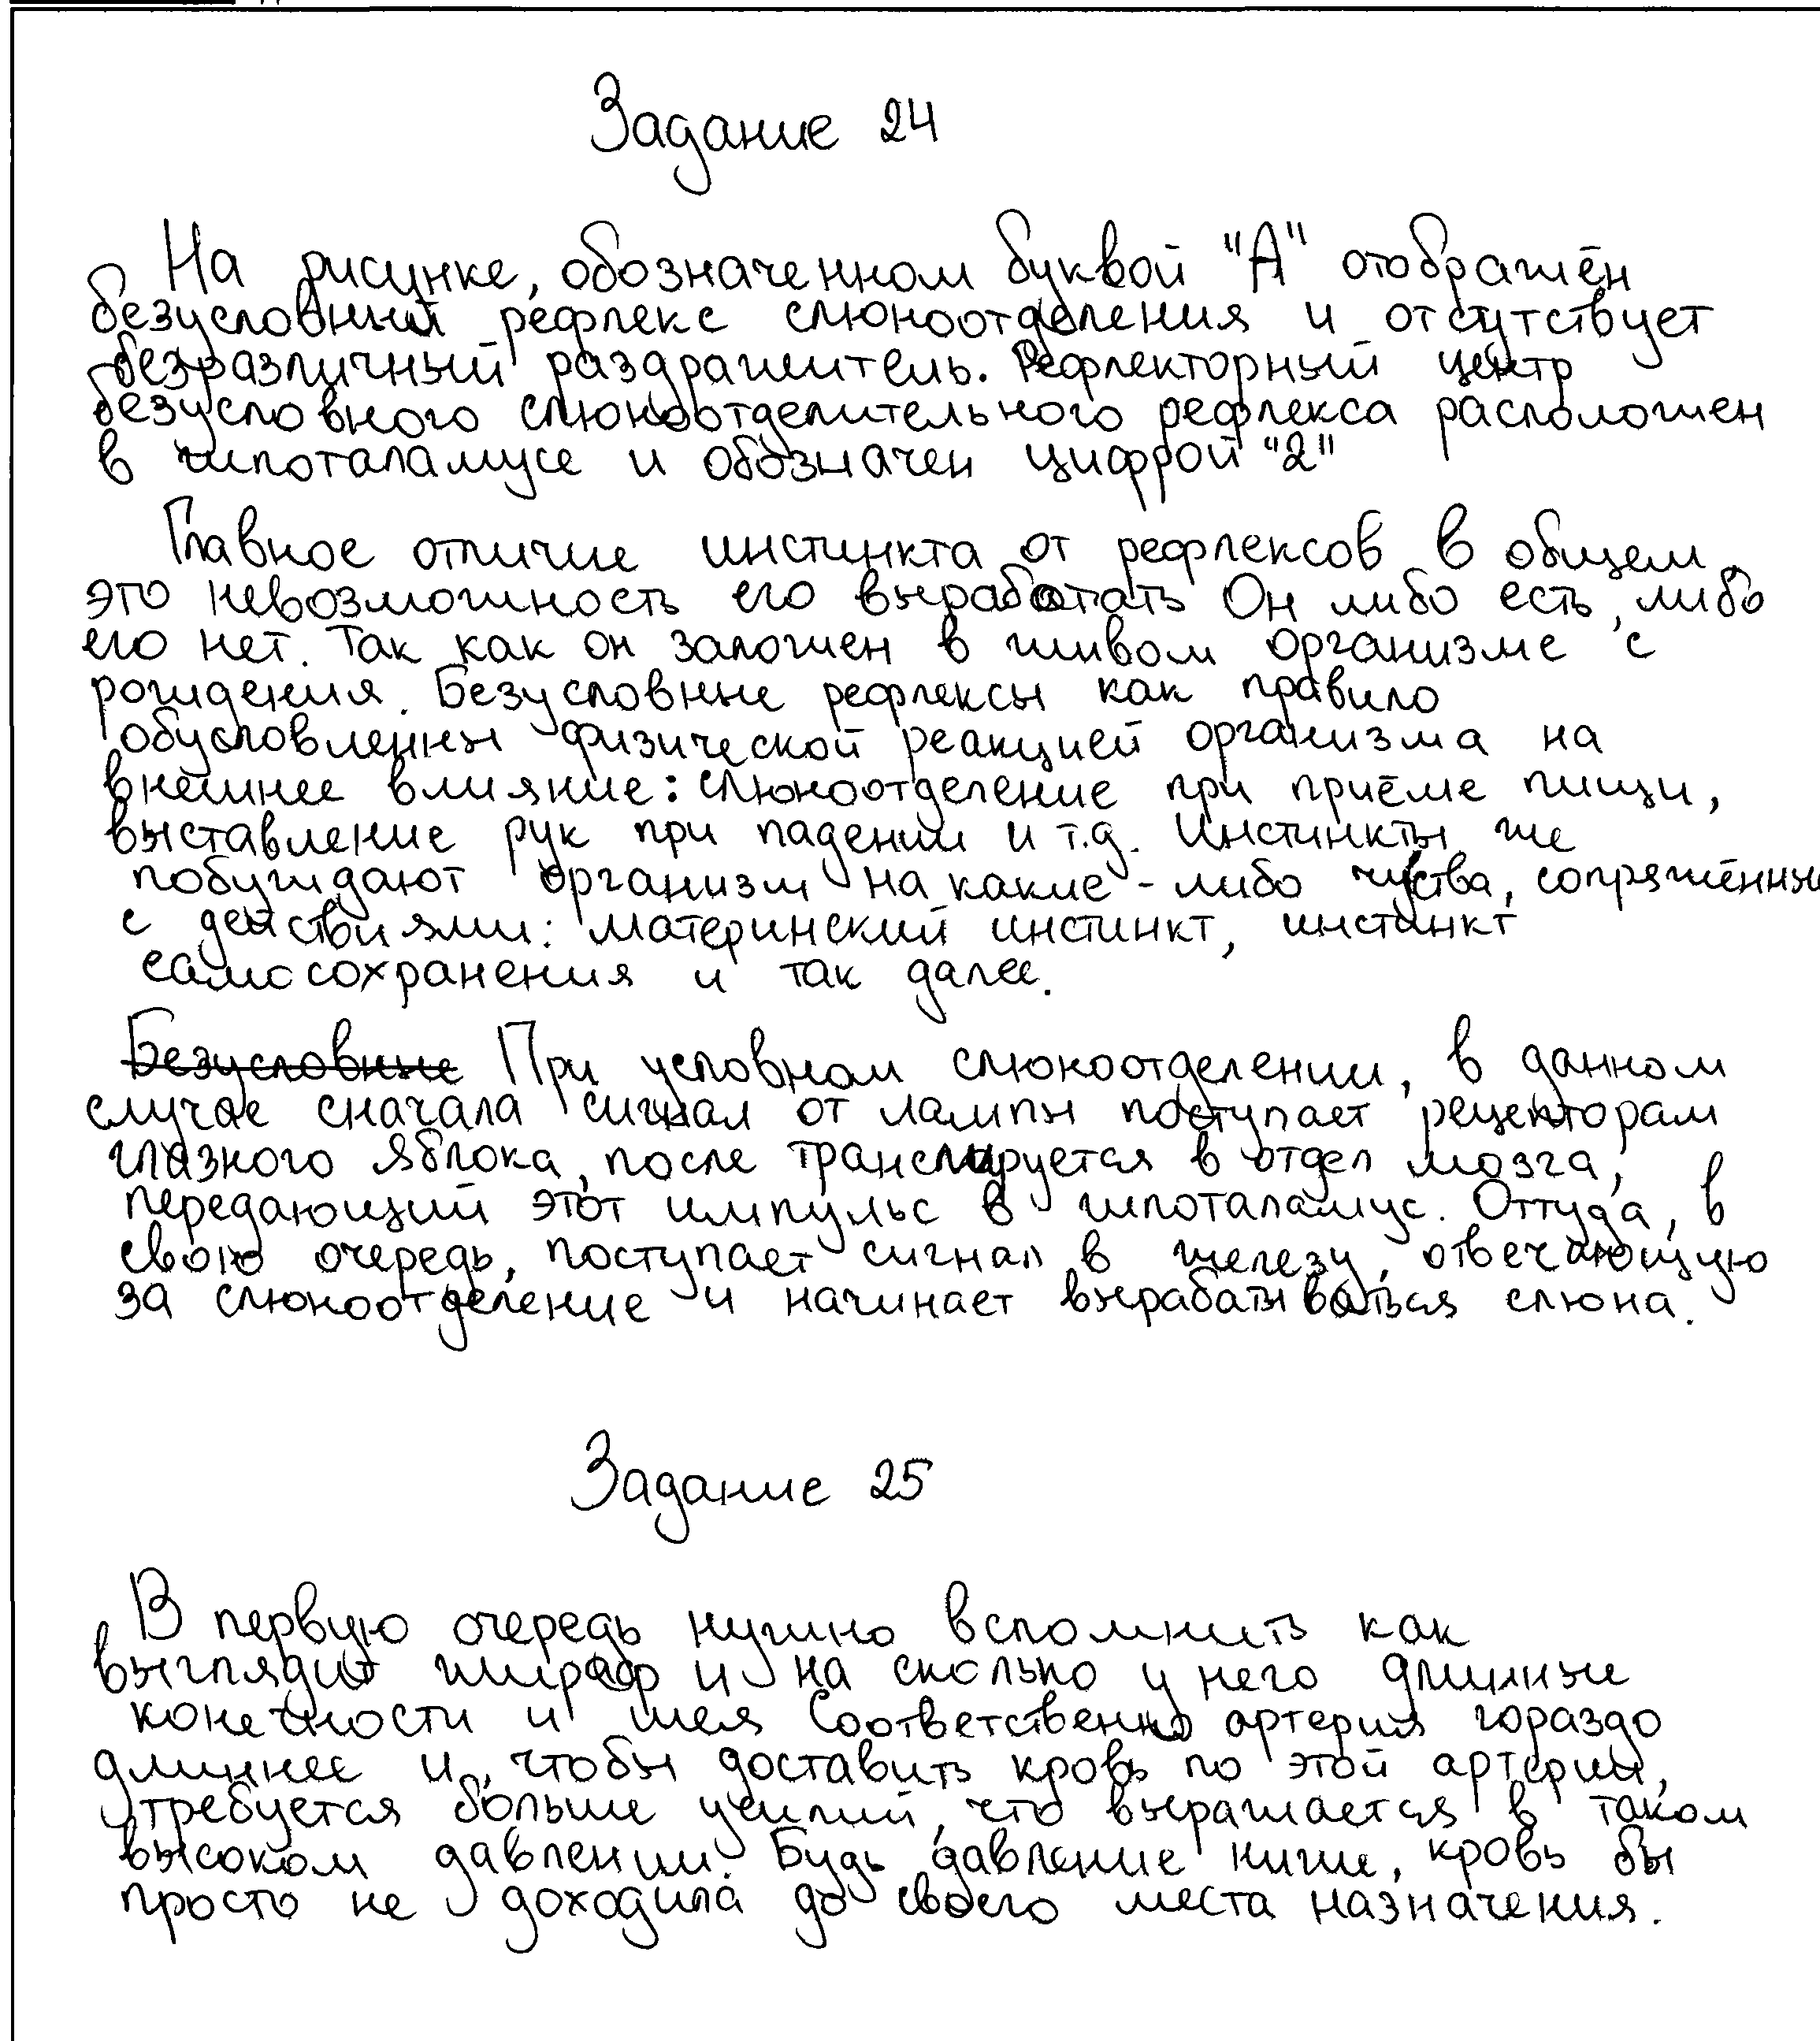 Задание 24
На рисунке, обозначенном буквой "А" отображён
безусловный рефлекс слюноотделения и отсутствует
безразличный раздражитель. Рефлекторный центр
безусловного слюноотделительного рефлекса расположен
в гипоталамусе и обозначен цифрой "2"
Главное отличие инстинкта от рефлексов в общем,
это невозможность его выработать Он либо есть, либо
его нет. Так как он заложен в живом организме с
рождения. Безусловные рефлексы как правило
обусловленны физической реакцией организма на
внешнее влияние: слюноотделение при приёме пищи,
выставление рук при падении и т.д. Инстинкты же
побуждают организм на какие-либо чуства, сопряжённые
с действиями: материнский инстинкт, инстинкт
самосохранения и так далее.
Безусловные При условном слюноотделении, в данном
случае сначала сигнал от лампы поступает рецепторам
глазного яблока, после транслируется в отдел мозга,
передающий этот импульс в гипоталамус. Оттуда, в
свою очередь, поступает сигнал в железу, отвечающую
за слюноотделение и начинает вырабатываться слюна.
Задание 25
В первую очередь нужно вспомнить как
выглядит жираф и на сколько у него длинные
конечности и шея Соответственно артерия гораздо
длиннее и, чтобы доставить кровь по этой артерии,
требуется больше усилий, что выражается в таком
высоком давлении. Будь давление ниже, кровь бы
просто не доходила до своего места назначения.